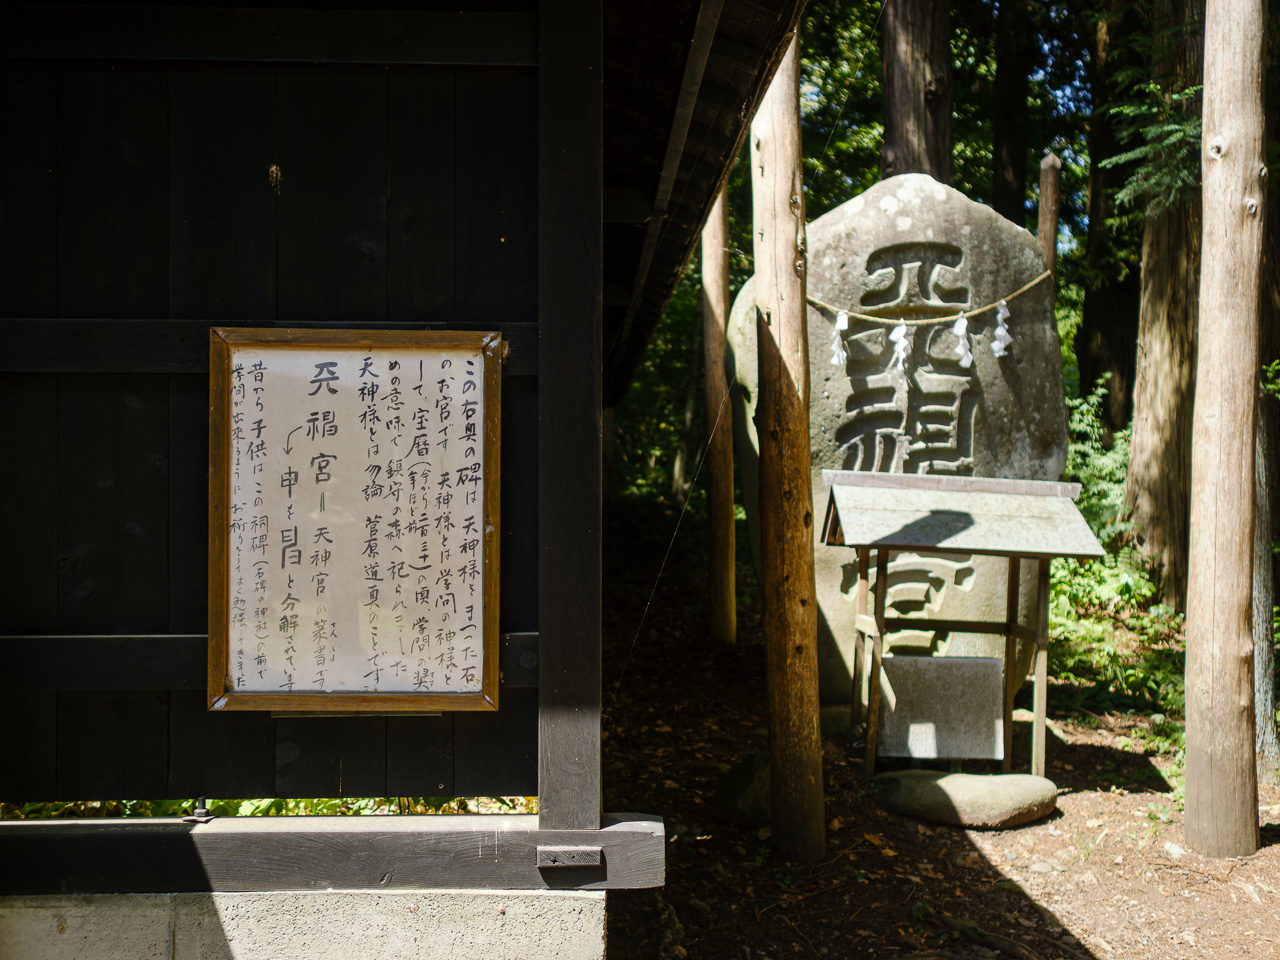 この右奥の碑は天神様をまつった石
のお宮です 天神様とは学問の神様と
して、宝暦(今から二百三十年ほど前)の頃、学問の奨
めの意味で鎮守の森へ祀られました
天神様とは勿論 菅原道真のことです
天神宮の篆書です
申も と分解されています
昔から子供はこの祠碑(石碑の神社)の前で
学問が出来るようにお祈りをしてよく勉強してきました